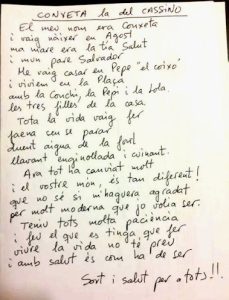 CONXETA la del CASSINO
El meu nom era Conxeta
i vaig nàixer en Agost
ma mare era la tia Salut
i mon pare Salvador
Me vaig casar en Pepe "el coixo"
i vivíem en la Plaça
amb la Conchi, la Pepi i la Lola
les tres filles de la casa.
Tota la vida vaig fer
faena sen se parar
duent aigua de la font
llavant enginollada i cuinant.
Ara tot ha canviat molt
i el vostre mon, és tan diferent!
que no sé si m'haguera agradat
per molt moderna que jo volia ser.
Teniu tots molta paciència
i feu el que es tinga que fer
viure la vida no té preu
i amb salut és com ha de ser
Sort i salut per a tots!!.